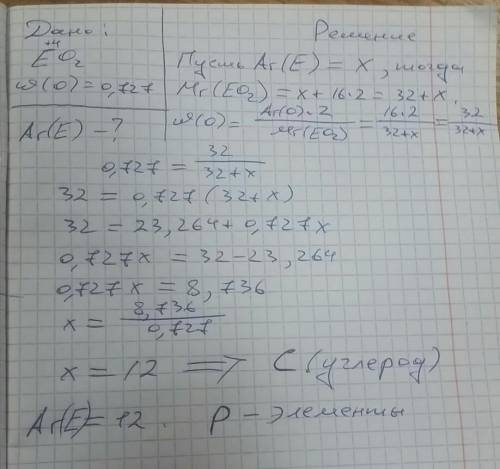 Дано:
+4
EO2
ω(O) = 0,727
Ar(E) - ?
Решение
Пусть Ar(E) = x, тогда
Mr(EO2) = x + 16·2 = 32 + x.
ω(O) = Ar(O)·2 / Mr(EO2) = 16·2 / 32+x = 32 / 32+x
0,727 = 32 / 32+x
32 = 0,727 (32+x)
32 = 23,264 + 0,727x
0,727x = 32 - 23,264
0,727x = 8,736
x = 8,736 / 0,727
x = 12 ⟹ C (углерод)
Ar(E) = 12. p - элементы